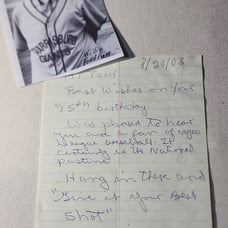 HARRISBURG
GIANTS
8/20/03
Hi Tony
Best Wishes on Your
95th birthday.
Was pleased to hear
You are a fan of Negro
League baseball. It
certainly is the National
pastime
Hang in there and
"Give it Your Best
Shot"